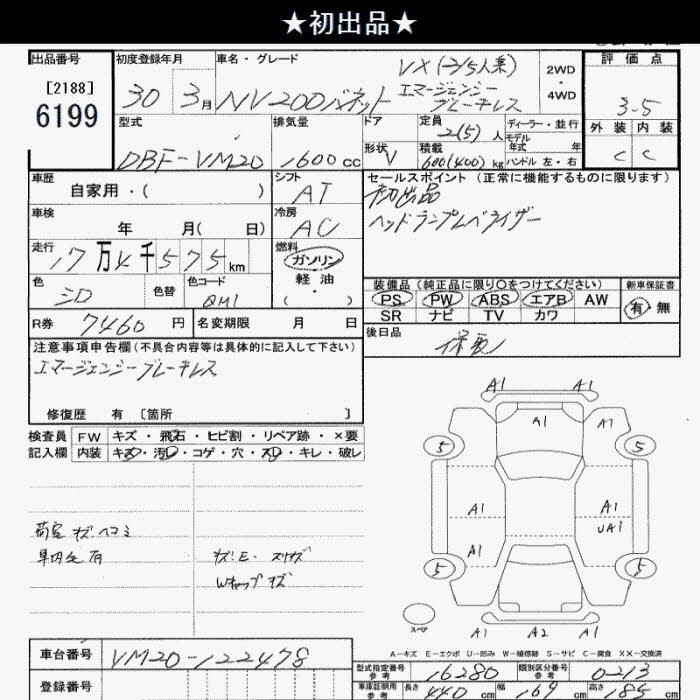 ★初出品★
出品番号
[2188]
6199
初度登録年月 30 3月
車名・グレード NV200バネット VX (2/5人乗)
エマージェンシーブレーキレス
2WD・4WD
評価点 3.5
外装 内装
C C
型式 DBF-VM20
排気量 1600cc
ドア
形状 V
定員 2(5)人
積載 600(400)kg
ディーラー・並行
モデル年式 年式
ハンドル 左・右
車歴 自家用・( )
シフト AT
車検 年 月( 日)
冷房 AC
走行 17万4千575km
燃料 ガソリン
軽油
・( )
色 シロ
色替
色コード QM1
R券 7460円
名変期限 月 日
セールスポイント (正常に機能するものに限ります)
初出品
ヘッドランプレベライザー
装備品 (純正品に限り○をつけてください)
PS PW ABS エアB AW
SR ナビ TV カワ
新車保証書
有・無
後日品
注意事項申告欄 (不具合内容等は具体的に記入して下さい)
エマージェンシーブレーキレス
修復歴 有 〔箇所 〕
検査員記入欄
FW キズ・飛石・ヒビ割・リペア跡・×要
内装 キズ・汚れ・コゲ・穴・スレ・キレ・破レ
荷室 キズ ヘコミ
キズ・E・スリキズ
Wキャップ キズ
A1 A1
A1 A1
5 5
A1 A1
UA1
A1
5 5
スペア
A1 A2 A1
A-キズ E-エクボ U-凹み W-補修跡 S-サビ C-腐食 XX-交換済
車台番号 VM20-122478
登録番号
型式指定番号 参考 16280
類別区分番号 参考 0213
車庫証明用 参考 長さ 440cm 幅 169cm 高さ 185cm